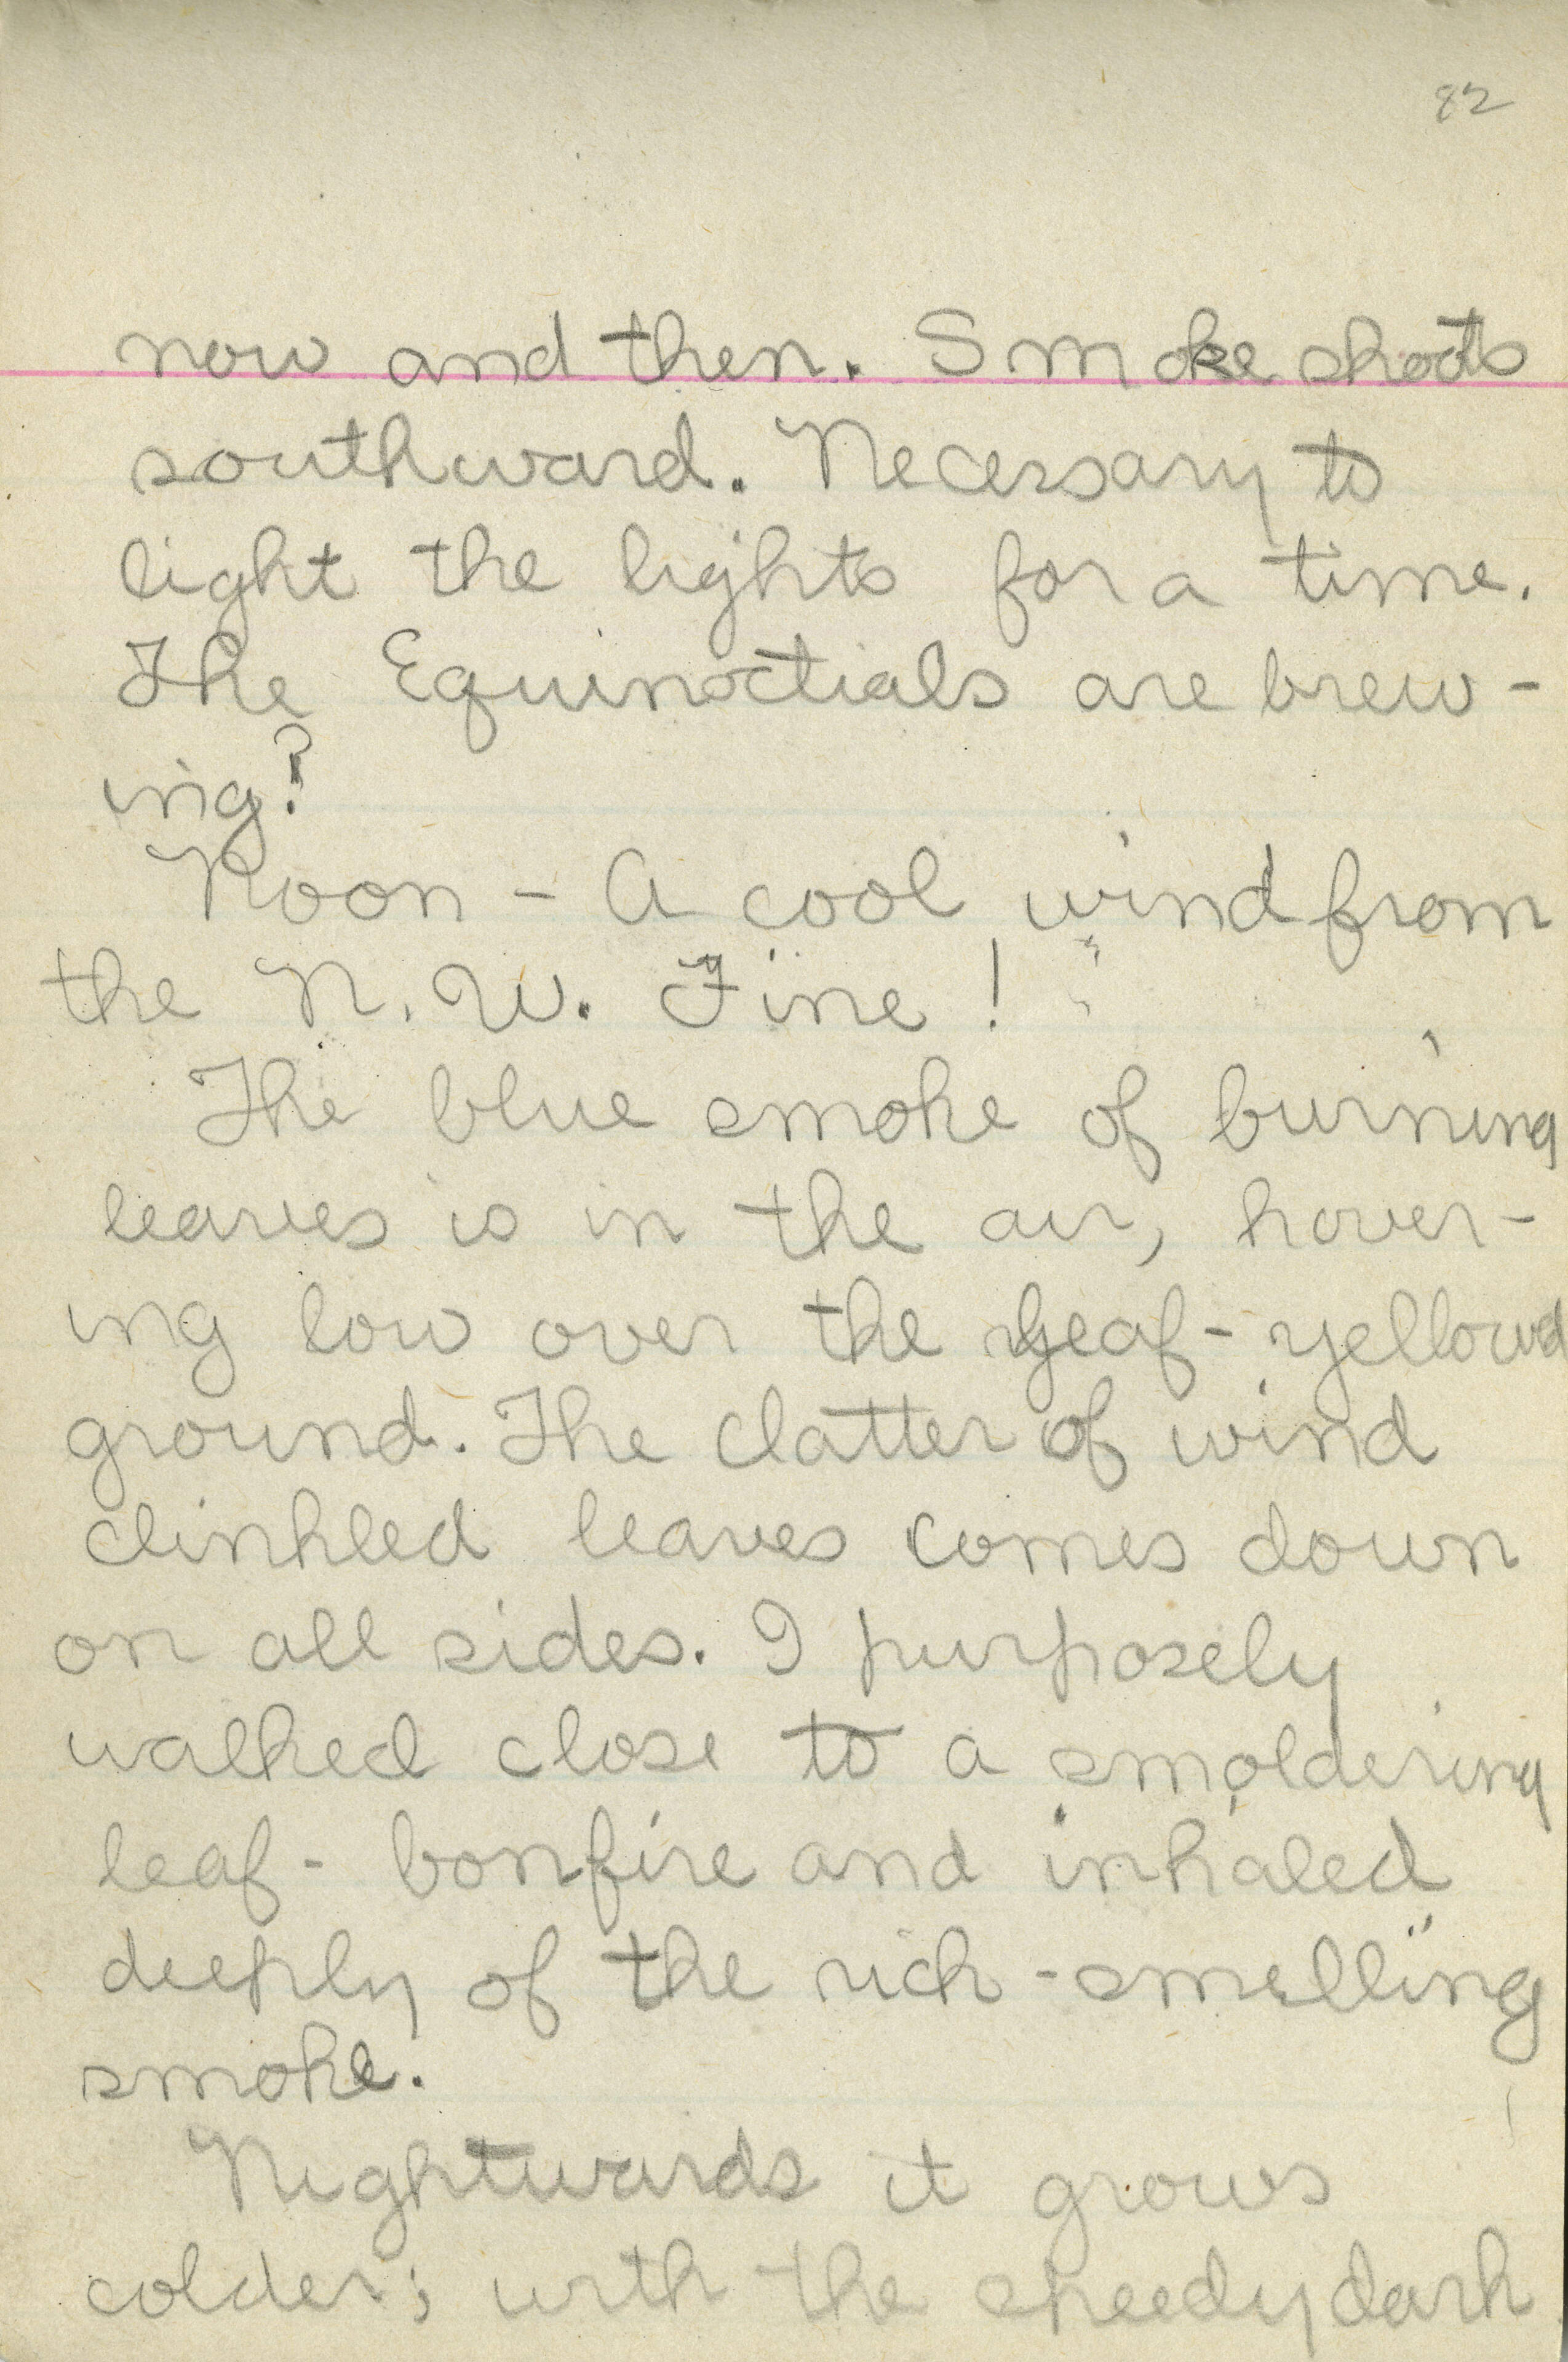 82
now and then. Smoke shoots
southward. Necessary to
light the lights for a time.
The Equinoctials are brew-
ing?
Noon - A cool wind from
the N. W. Fine!
The blue smoke of burning
leaves is in the air, hover-
ing low over the leaf-yellowed
ground. The clatter of wind
clinkled leaves comes down
on all sides. I purposely
walked close to a smoldering
leaf-bonfire and inhaled
deeply of the rich-smelling
smoke.
Nightwards it grows
colder; with the speedy dark